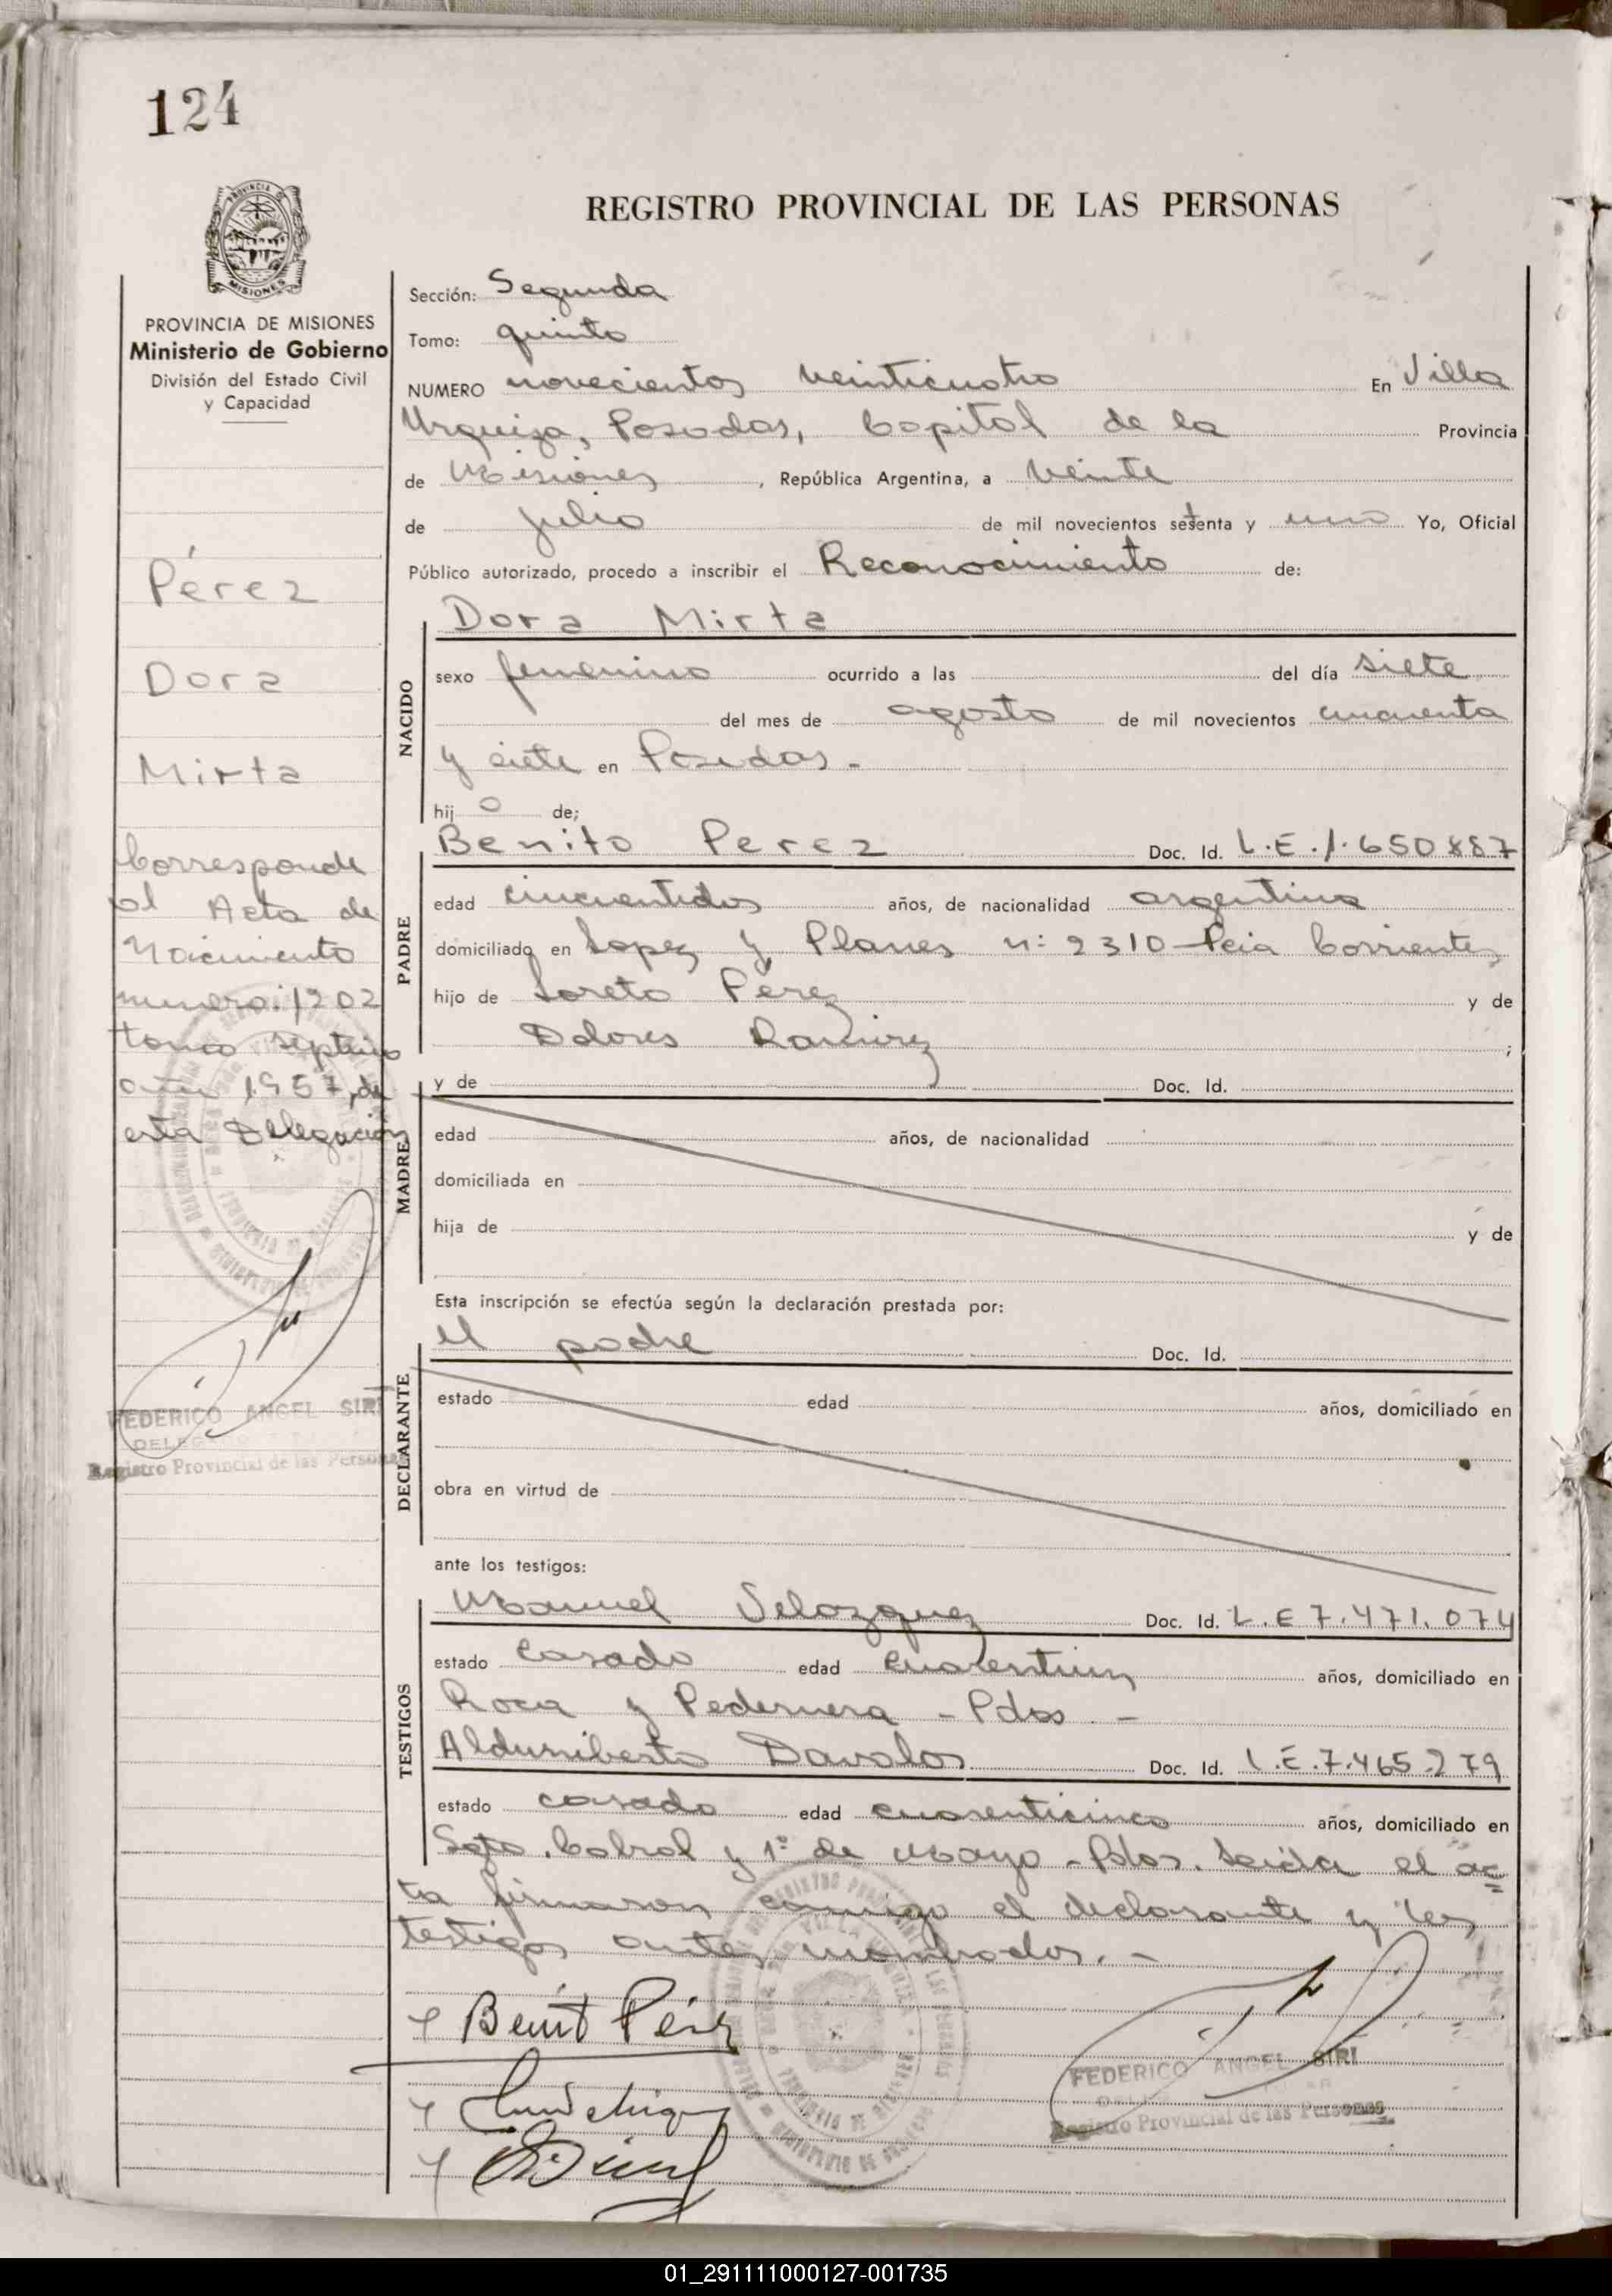 124
REGISTRO PROVINCIAL DE LAS PERSONAS
MISIONES
PROVINCIA DE MISIONES
Ministerio de Gobierno
División del Estado Civil
y Capacidad
Pérez
Dora
Mirta
Corresponde
al Acta de
Nacimiento
numero: 1202
tomo septimo
año 1957, de
esta Delegación
FEDERICO ANGEL SIRI
Registro Provincial de las Personas
Sección: Segunda
Tomo: quinto
NUMERO novecientos veinticuatro En Villa
Urquiza, Posadas, Capital de la Provincia
de Misiones, República Argentina, a veinte
de julio de mil novecientos setenta y uno Yo, Oficial
Público autorizado, procedo a inscribir el Reconocimiento de:
NACIDO
Dora Mirta
sexo femenino ocurrido a las del día siete
del mes de agosto de mil novecientos cincuenta
y siete en Posadas.-
hijo de;
PADRE
Benito Perez Doc. Id. L.E.1.650.887
edad cincuentidos años, de nacionalidad argentina
domiciliado en Lopez y Planes n: 2310-Pcia Corrientes
hijo de Loreto Pérez y de
Dolores Ramirez ;
MADRE
y de Doc. Id.
edad años, de nacionalidad
domiciliada en
hija de y de
Esta inscripción se efectúa según la declaración prestada por:
DECLARANTE
el padre Doc. Id.
estado edad años, domiciliado en
obra en virtud de
ante los testigos:
TESTIGOS
Manuel Velozquez Doc. Id. L.E 7.471.074
estado casado edad cuarentiun años, domiciliado en
Roca y Pedernera - Pdas -
Aldumiberto Davalos Doc. Id. L.E.7.465.279
estado casado edad cuarenticinco años, domiciliado en
Sgto. Cabral y 1º de Mayo - Pdas. Leída el ac=
ta firmaron conmigo el declarante y los
testigos antes nombrados.-
Benito Pérez
FEDERICO ANGEL SIRI
Registro Provincial de las Personas
01_291111000127-001735